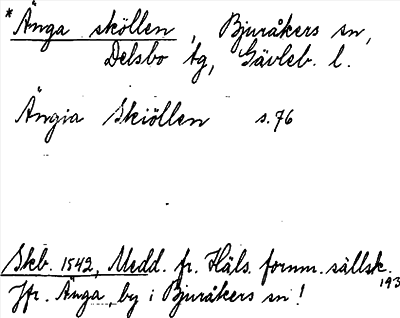 * Änga sköllen, Bjuråkers sn,
Delsbo tg, Gävleb. l.
Ängia Skiöllen s. 76
Skb. 1542, Medd. fr. Häls. fornm. sällsk.
193
Jfr. Änga, by i Bjuråkers sn!